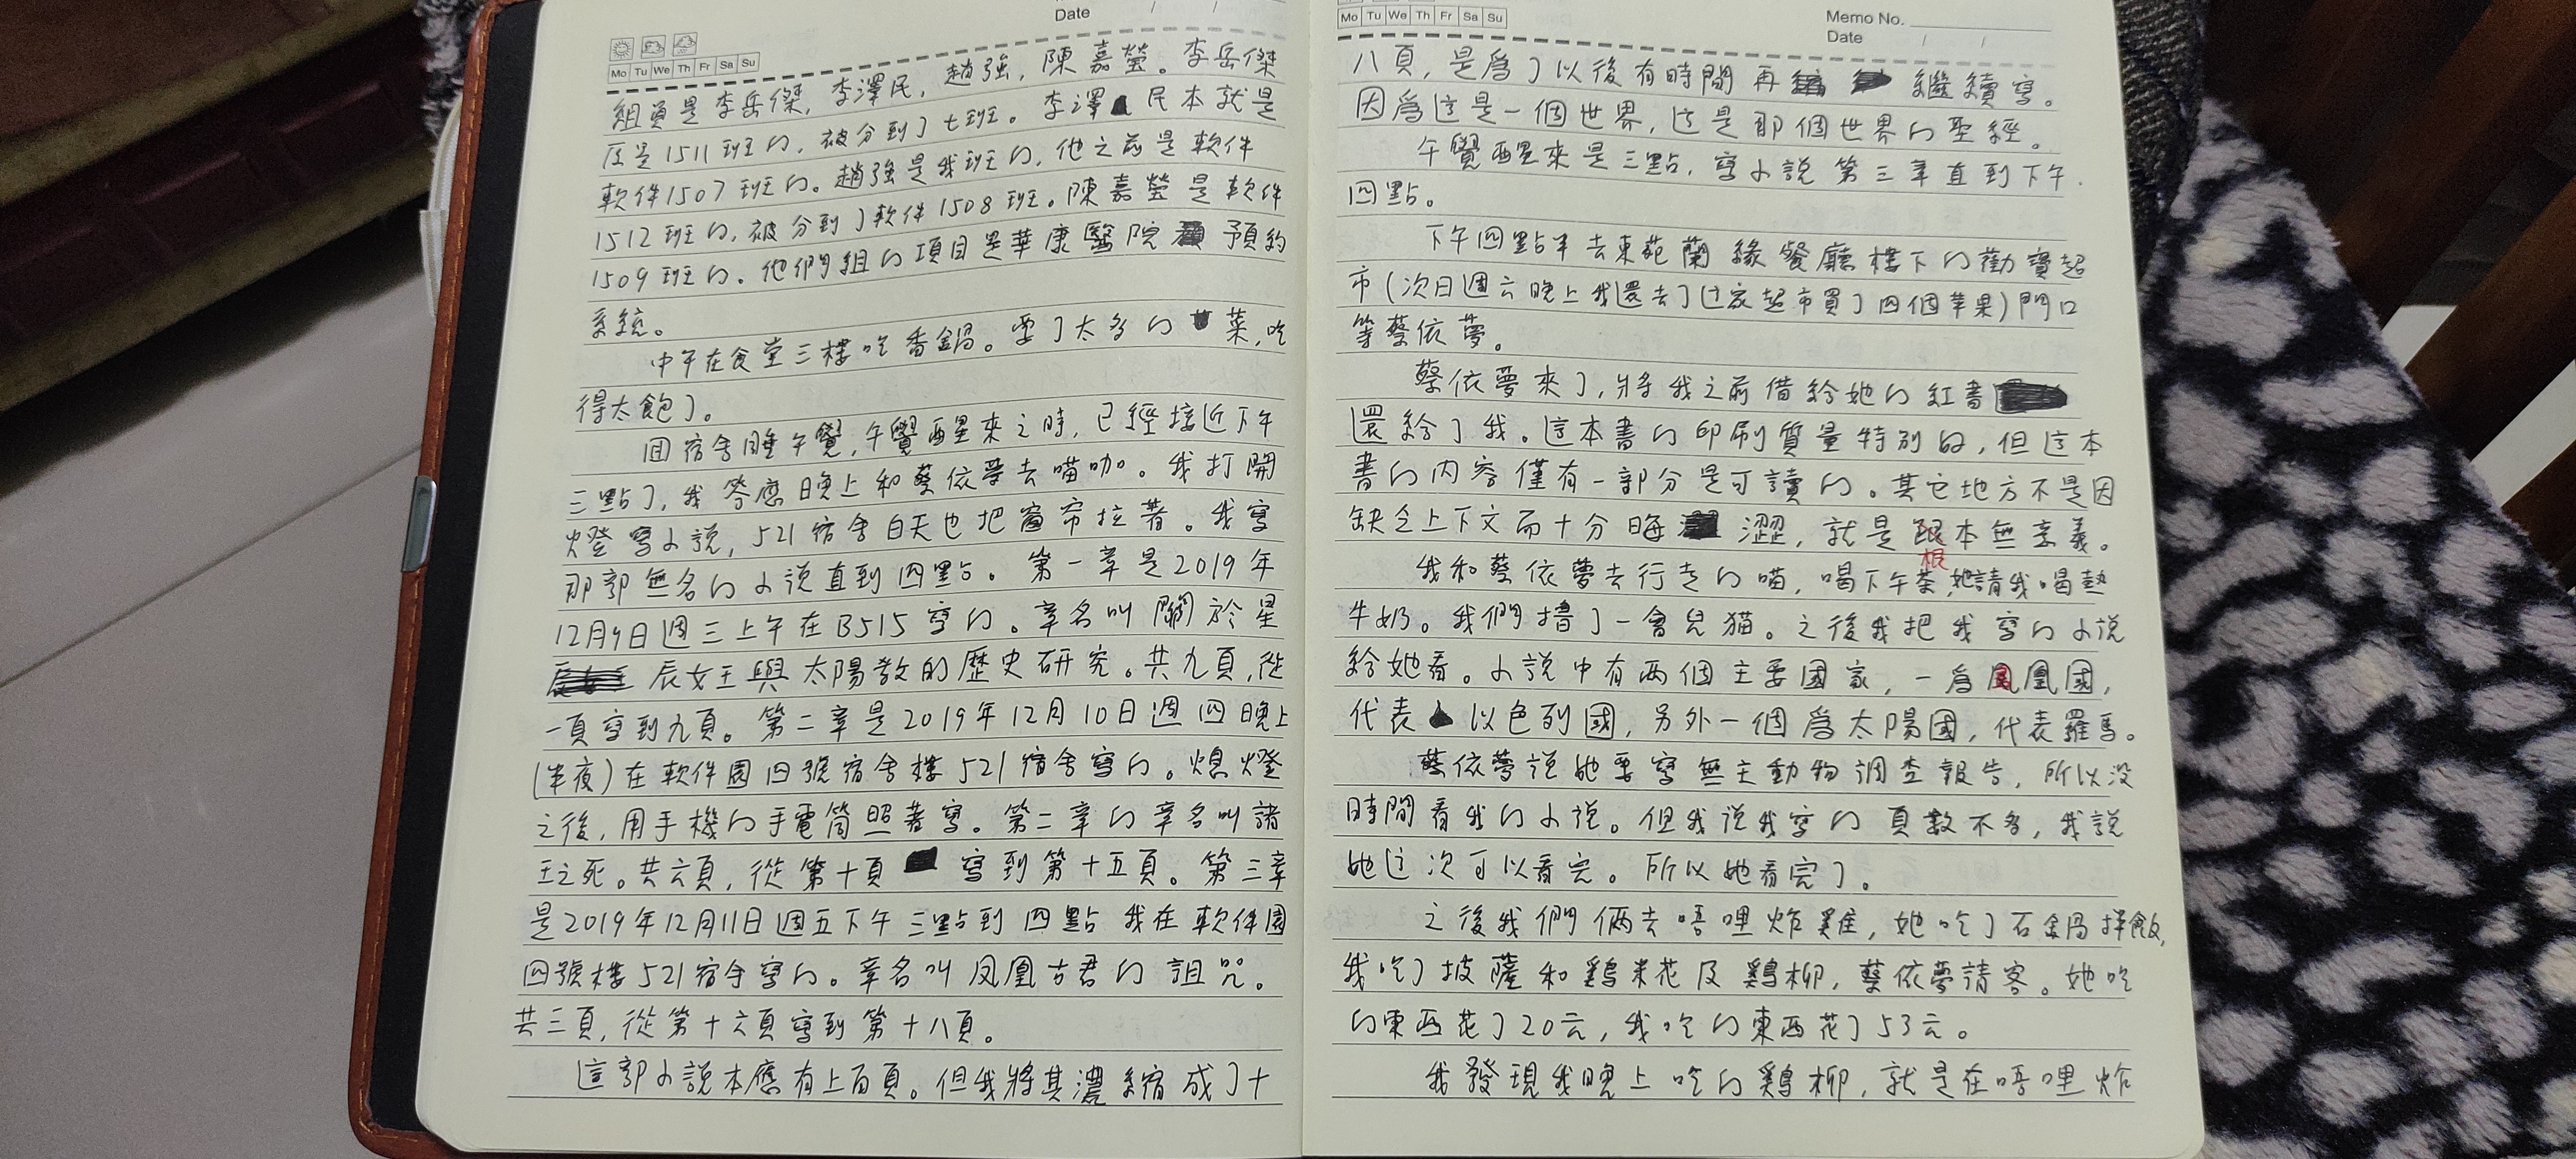 Date / /
Mo Tu We Th Fr Sa Su
組員是李岳傑, 李澤民, 趙強, 陳嘉瑩。李岳傑
原是1511班的, 被分到了七班。李澤民本就是
軟件1507班的。趙強是我班的, 他之前是軟件
1512班的, 被分到了軟件1508班。陳嘉瑩是軟件
1509班的。他們組的項目是華康醫院預約
系統。
中午在食堂三樓吃香鍋。要了太多的菜, 吃
得太飽了。
回宿舍睡午覺, 午覺醒來之時, 已經接近下午
三點了, 我答應晚上和蔡依夢去喵咖。我打開
燈寫小說, 521宿舍白天也把窗帘拉著。我寫
那部無名的小說直到四點。第一章是2019年
12月9日週三上午在B515寫的。章名叫關於星
辰女王與太陽教的歷史研究。共九頁, 從
一頁寫到九頁。第二章是2019年12月10日週四晚上
(半夜)在軟件園四號宿舍樓521宿舍寫的。熄燈
之後, 用手機的手電筒照著寫。第二章的章名叫諸
王之死。共六頁, 從第十頁寫到第十五頁。第三章
是2019年12月11日週五下午三點到四點我在軟件園
四號樓521宿舍寫的。章名叫凤凰古君的詛咒。
共三頁, 從第十六頁寫到第十八頁。
這部小說本應有上百頁。但我將其濃縮成了十
Mo Tu We Th Fr Sa Su
Memo No.
Date / /
八頁, 是為了以後有時間再繼續寫。
因為這是一個世界, 這是那個世界的聖經。
午覺醒來是三點, 寫小說第三章直到下午
四點。
下午四點半去東苑蘭緣餐廳樓下的勸寶超
市(次日週六晚上我還去了這家超市買了四個苹果)門口
等蔡依夢。
蔡依夢來了, 將我之前借給她的紅書
還給了我。這本書的印刷質量特別的, 但這本
書的内容僅有一部分是可讀的。其它地方不是因
缺乏上下文而十分晦澀, 就是根本無意義。
我和蔡依夢去行走的喵, 喝下午茶, 她請我喝熱
牛奶。我們擼了一會兒猫。之後我把我寫的小說
給她看。小說中有两個主要國家, 一為鳳凰國,
代表以色列國, 另外一個為太陽國, 代表羅馬。
蔡依夢說她要寫無主動物調查報告, 所以没
時間看我的小說。但我说我寫的頁数不多, 我說
她這次可以看完。所以她看完了。
之後我們俩去唔哩炸雞, 她吃了石鍋拌飯,
我吃了披薩和鷄米花及鷄柳, 蔡依夢請客。她吃
的東西花了20元, 我吃的東西花了53元。
我發現我晚上吃的鷄柳, 就是在唔哩炸